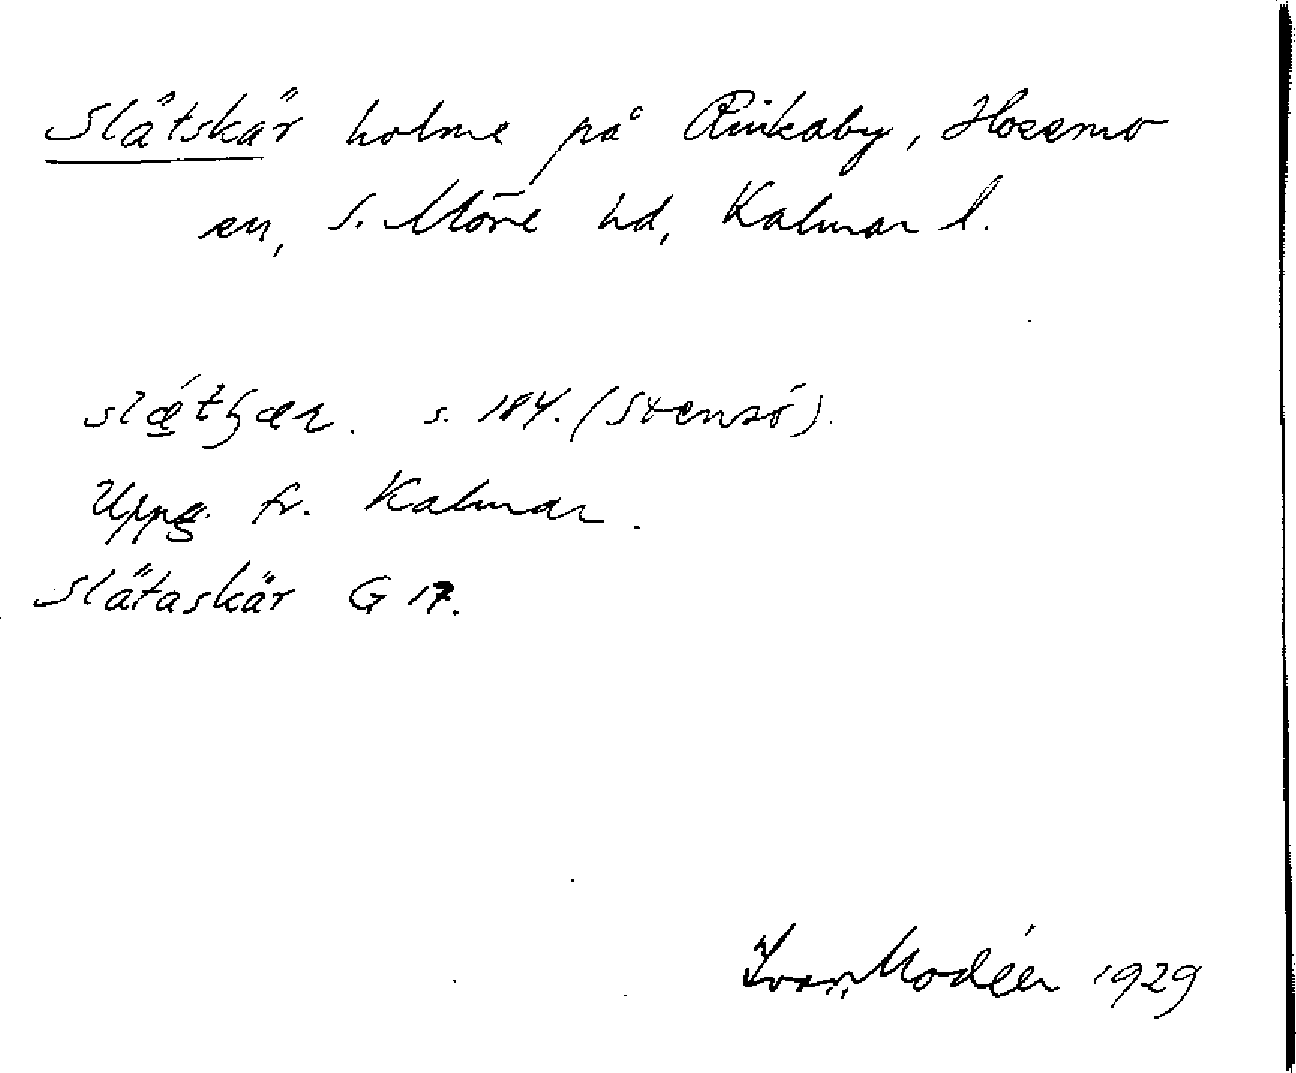 Slätskär holme på Rinkaby, Hossmo
sn, S. Möre hd, Kalmar l.
s. 184. (Stensö).
Uppg. fr. Kalmar.
Slätaskär G 17.
Ivar Modéer 1929